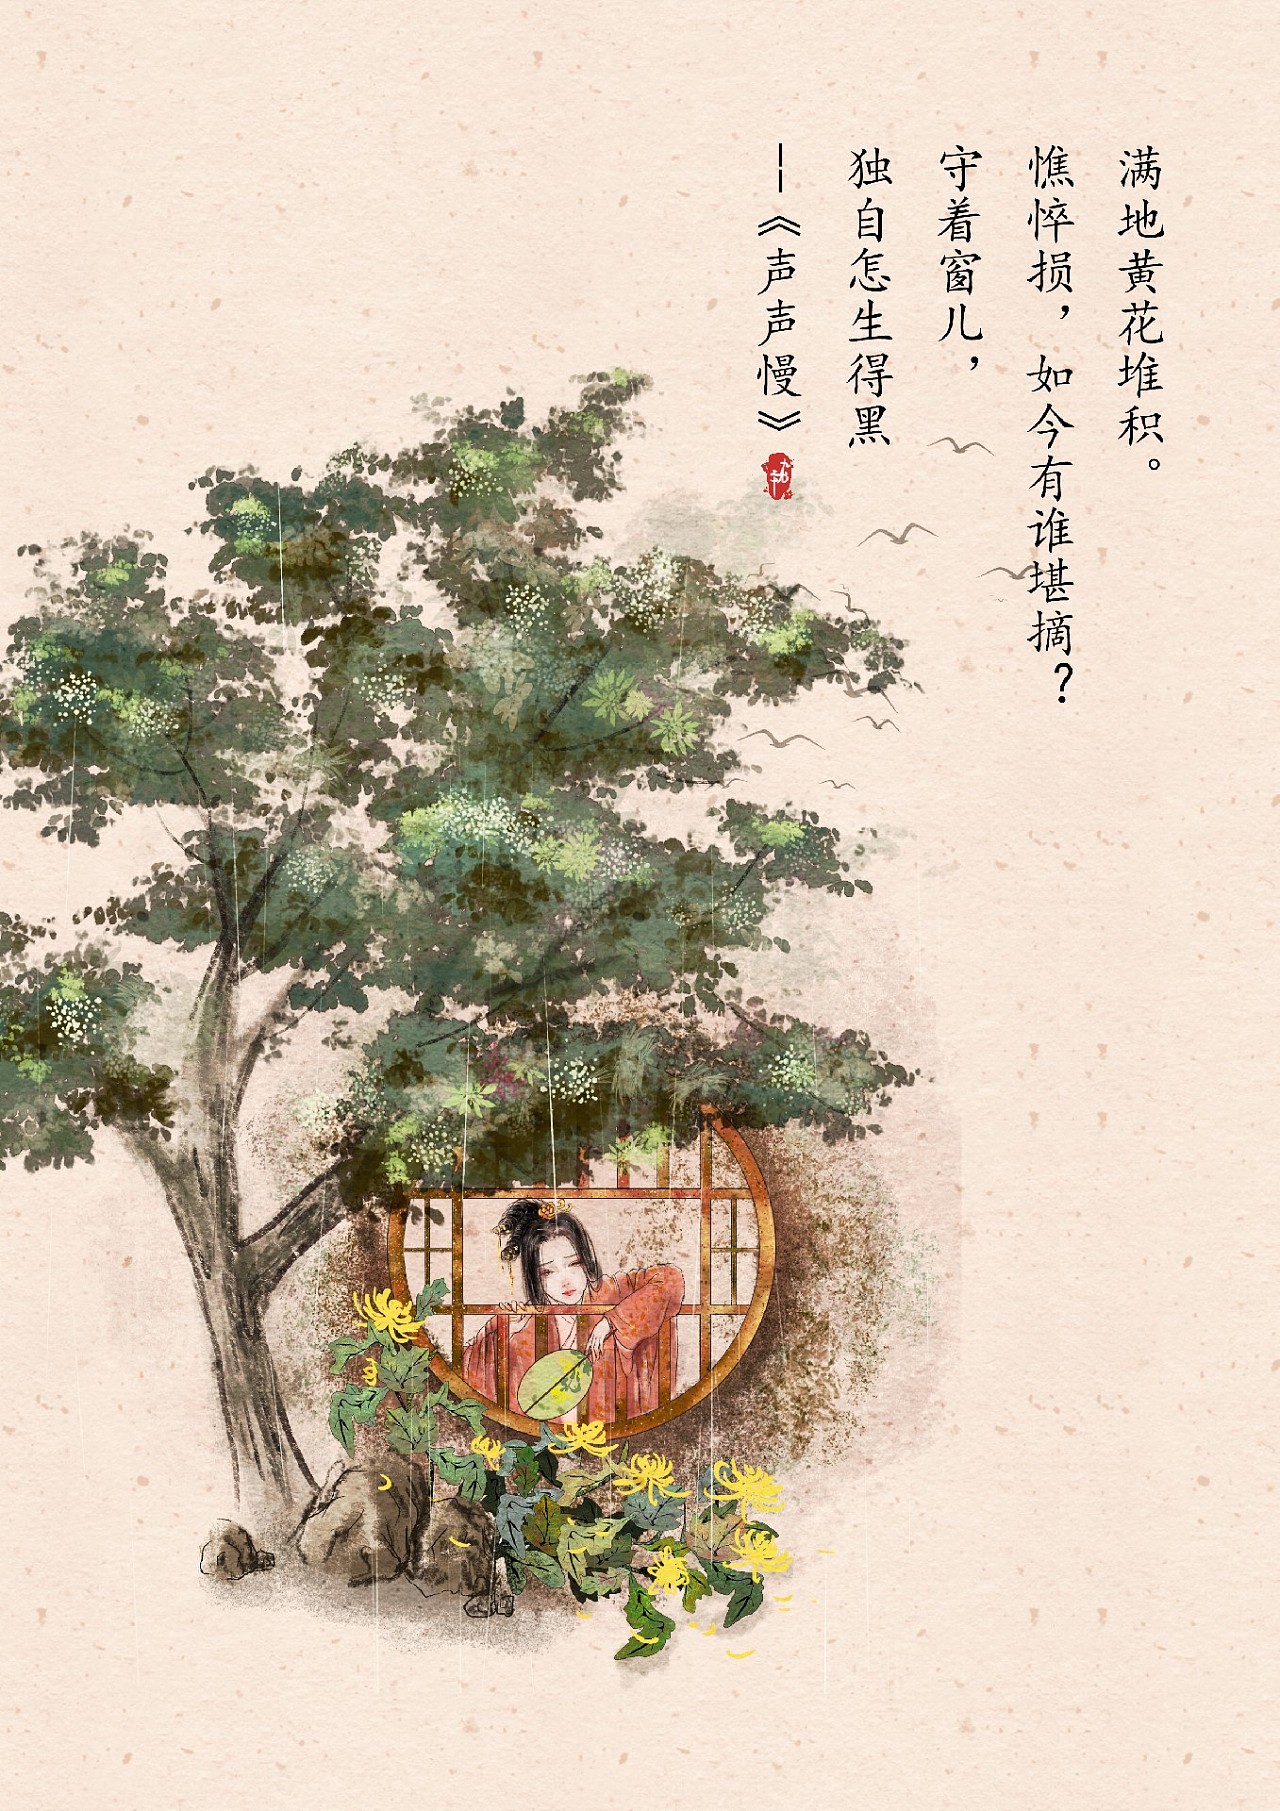 满地黄花堆积。
憔悴损，如今有谁堪摘？
守着窗儿，
独自怎生得黑
——《声声慢》